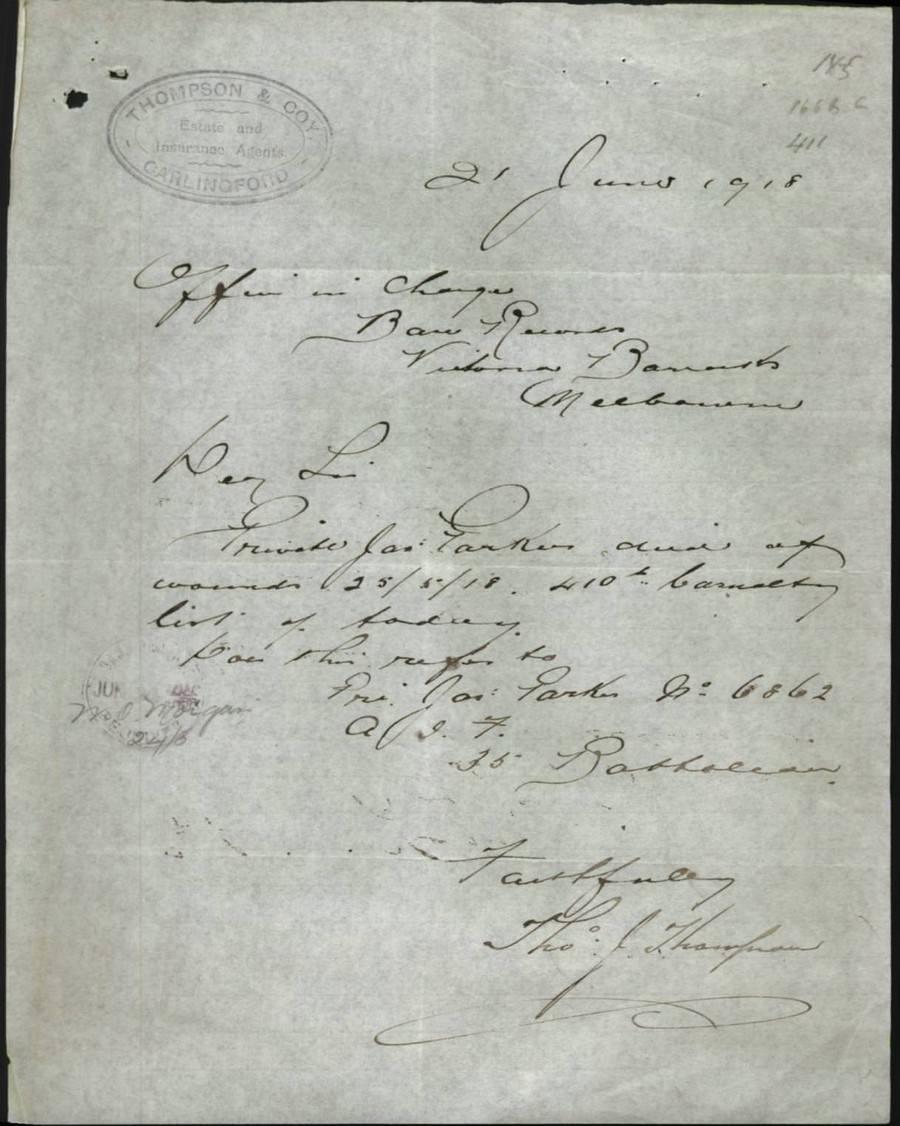 THOMPSON & COY.
Estate and
Insurance Agents.
CARLINGFORD
145
411
21 June 1918
Officer in Charge
Base Records
Victoria Barracks
Melbourne
Dear Sir
Private Jas. Parker died of
wounds 25/5/18. 410th Casualty
list of today
Does this refer to
Pri. Jas. Parker No 6862
A. I. F.
35 Battalion.
JUN
24/6
Faithfully
Thos. J. Thompson